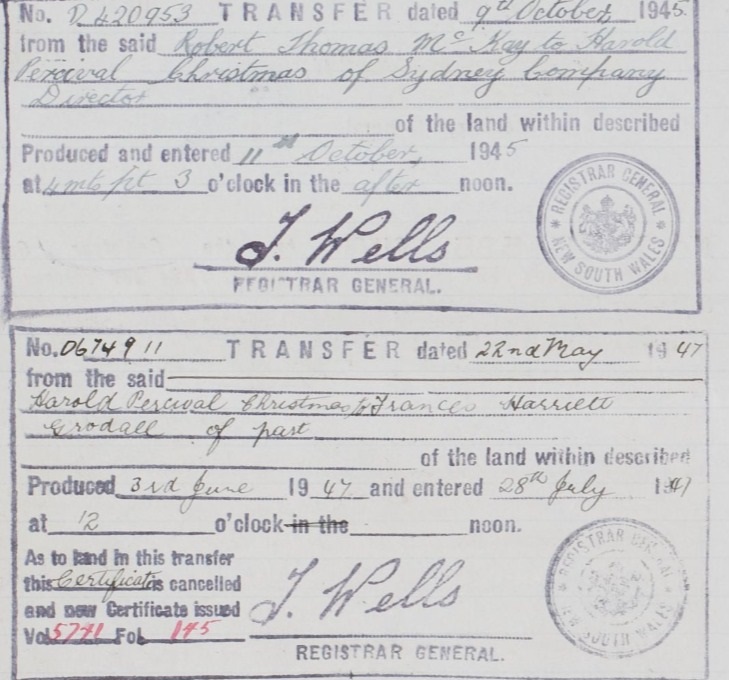 No. D420953 TRANSFER dated 9th October 1945
from the said Robert Thomas McKay to Harold
Percival Christmas of Sydney Company
Director
of the land within described
Produced and entered 11th October, 1945
at pt 3 o'clock in the after noon.
J. Wells
REGISTRAR GENERAL.
REGISTRAR GENERAL
NEW SOUTH WALES
No. D674911 TRANSFER dated 22nd May 1947
from the said
Harold Percival Christmas to Frances Harriett
of part
of the land within described
Produced 3rd June 1947 and entered 28th July 1947
at 12 o'clock in the noon.
As to land in this transfer
this Certificate is cancelled
and new Certificate issued
Vol. 5741 Fol. 145
J. Wells
REGISTRAR GENERAL.
REGISTRAR GENERAL
NEW SOUTH WALES